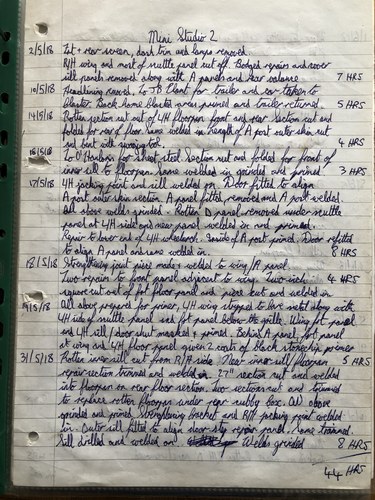 Mini Studio 2
2/5/18 Frt + rear screen, dash trim and lamps removed.
R/H wing and most of scuttle panel cut off. Bodged repairs and cover
sill panels removed along with A panels and rear valance 7 HRS
10/5/18 Headlining removed. To JB Plant for trailer and car taken to
blaster. Back home blasted areas primed and trailer returned. 5 HRS
14/5/18 Rotten section cut out of L/H floorpan front and rear. Section cut and
folded for rear of floor. Same welded in. Length of A post outer skin cut
and bent with 4 HRS
16/5/18 To O'Hanlons for sheet steel. Section cut and folded for front of
inner sill to floorpan. Same welded in grinded and primed 3 HRS
17/5/18 L/H jacking point and sill welded on. Door fitted to align
A post outer skin section. A panel fitted removed and A post welded.
All above welds grinded. Rotten D panel removed under scuttle
panel at L/H side and new panel welded in and primed.
Repair to lower end of L/H wheelarch. Inside of A post primed. Door refitted
to align A panel and same welded in. 8 HRS
18/5/18 Strengthening joint piece made + welded to wing/A panel
Two repairs to front panel adjacent to wing, two inch 4 HRS
repair cut out of frt floor panel and piece cut and welded in
19/5/18 All above prepared for primer, L/H wing stripped to bare metal along with
L/H side of scuttle panel and frt panel below the grille. Wing frt panel
and L/H sill/door shut masked + primed. Behind A panel, frt panel
at wing and L/H floor panel given 2 coats of black stonechip primer
31/5/18 Rotten inner sill cut from R/H side. New inner sill floorpan 5 HRS
repair section trimmed and welded in. 27" section cut and welded
into floorpan in rear floor section. Two sections cut and trimmed
to replace rotten floorpan under rear cubby box. All above
grinded and primed. Strengthening bracket and R/H jacking point welded
in. Outer sill fitted to align door step repair panel. Same trimmed.
Sill drilled and welded on. Welds grinded 8 HRS
44 HRS